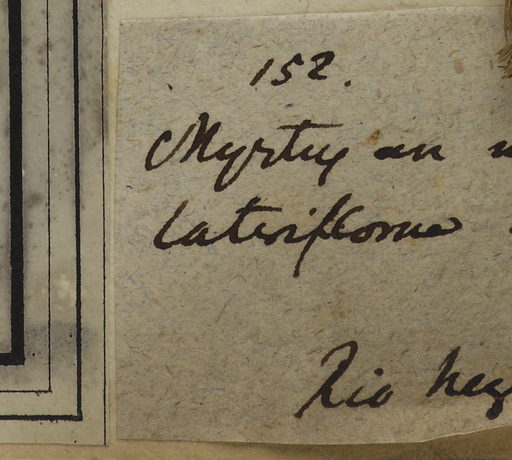 152.
Myrtus an
lateriflorus
Rio Neg